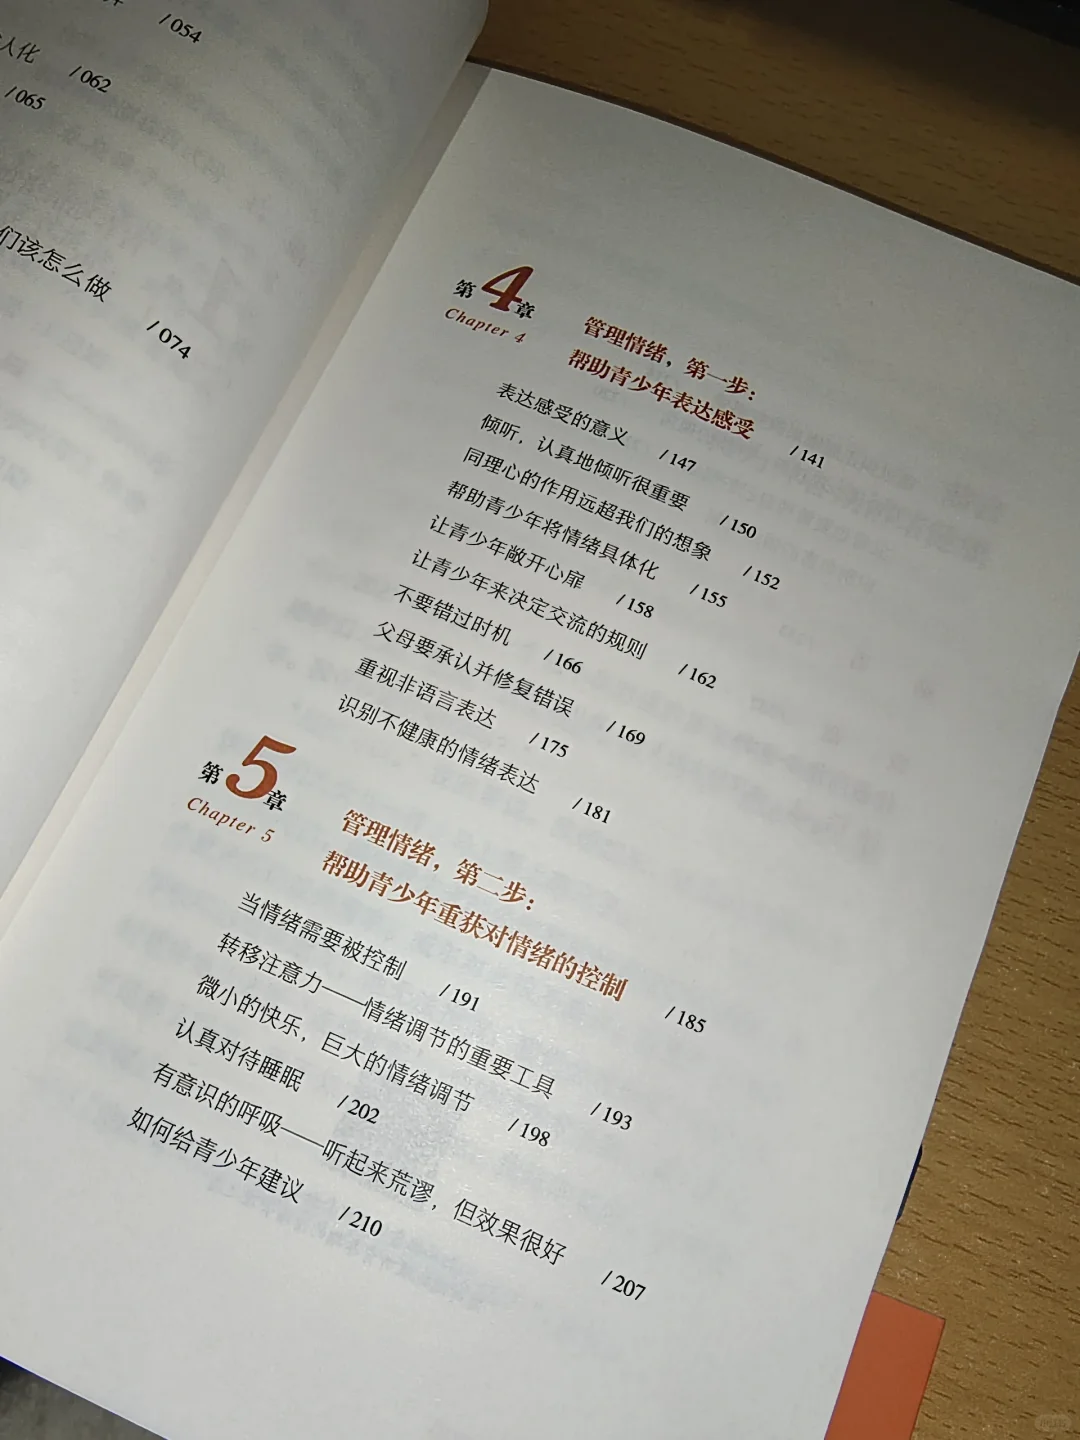 / 054
人化 / 062
/ 065
们该怎么做
/ 074
第4章
Chapter 4
管理情绪，第一步：
帮助青少年表达感受 / 141
表达感受的意义 / 147
倾听，认真地倾听很重要 / 150
同理心的作用远超我们的想象 / 152
帮助青少年将情绪具体化 / 155
让青少年敞开心扉 / 158
让青少年来决定交流的规则 / 162
不要错过时机 / 166
父母要承认并修复错误 / 169
重视非语言表达 / 175
识别不健康的情绪表达 / 181
第5章
Chapter 5
管理情绪，第二步：
帮助青少年重获对情绪的控制 / 185
当情绪需要被控制 / 191
转移注意力——情绪调节的重要工具 / 193
微小的快乐，巨大的情绪调节 / 198
认真对待睡眠 / 202
有意识的呼吸——听起来荒谬，但效果很好 / 207
如何给青少年建议 / 210